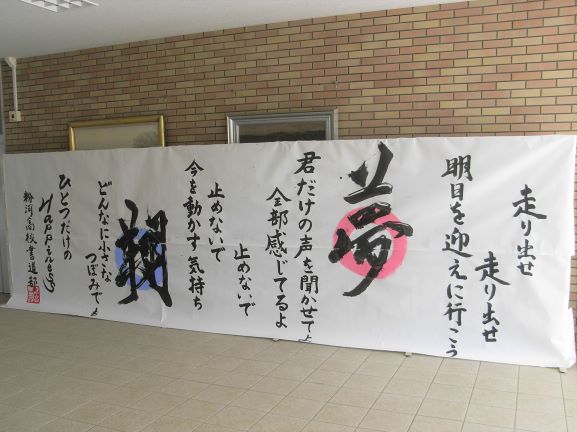 走り出せ
走り出せ
明日を迎えに行こう
夢
君だけの声を聞かせてよ
全部感じてるよ
止めないで
止めないで
今を動かす気持ち
翔
どんなに小さな
つぼみでも
ひとつだけの
Happiness
粉河高校書道部